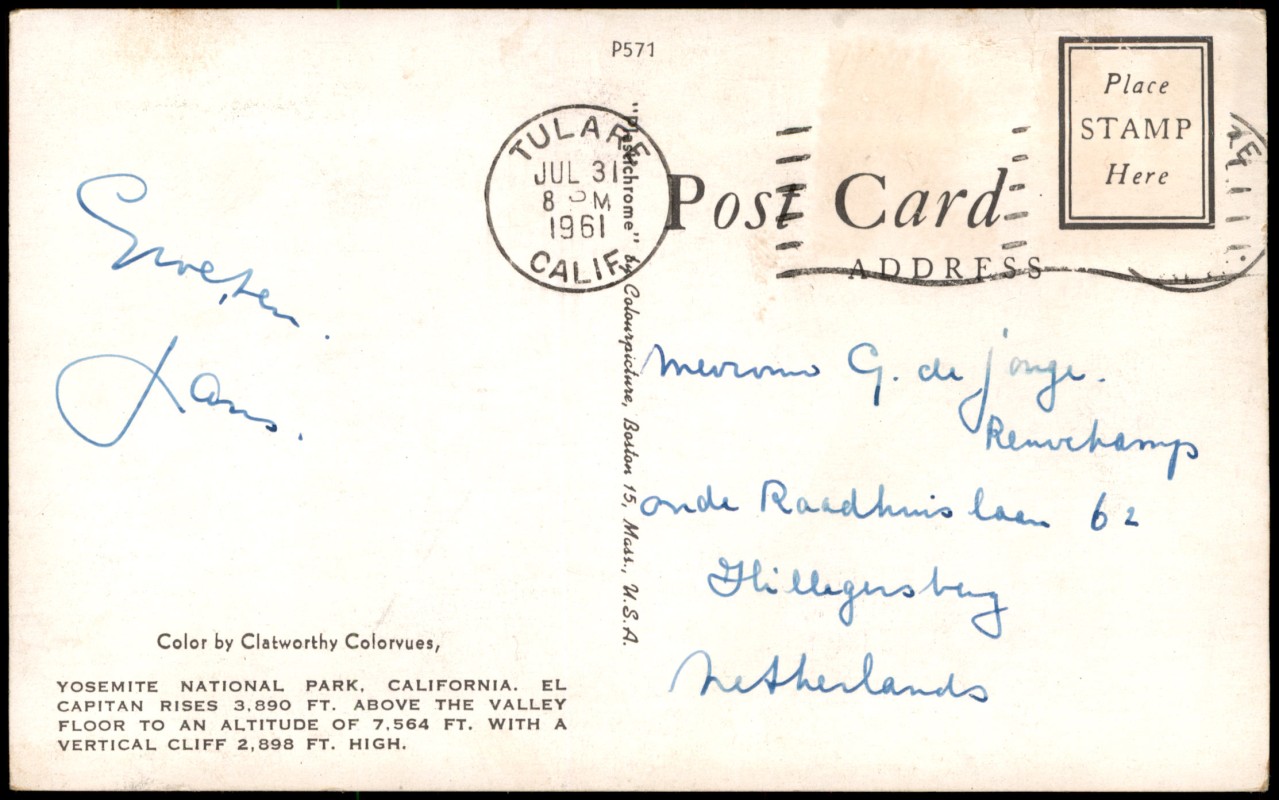 P571
Place
STAMP
Here
TULARE
JUL 31
8 PM
1961
CALIF.
Post Card
ADDRESS
"Plastichrome" by Colourpicture, Boston 15, Mass., U.S.A.
Groeten.
Mevrouw G. de Jonge.
onde Raadhuislaan 62
Hillegersberg
Netherlands
Color by Clatworthy Colorvues,
YOSEMITE NATIONAL PARK, CALIFORNIA. EL
CAPITAN RISES 3,890 FT. ABOVE THE VALLEY
FLOOR TO AN ALTITUDE OF 7,564 FT. WITH A
VERTICAL CLIFF 2,898 FT. HIGH.